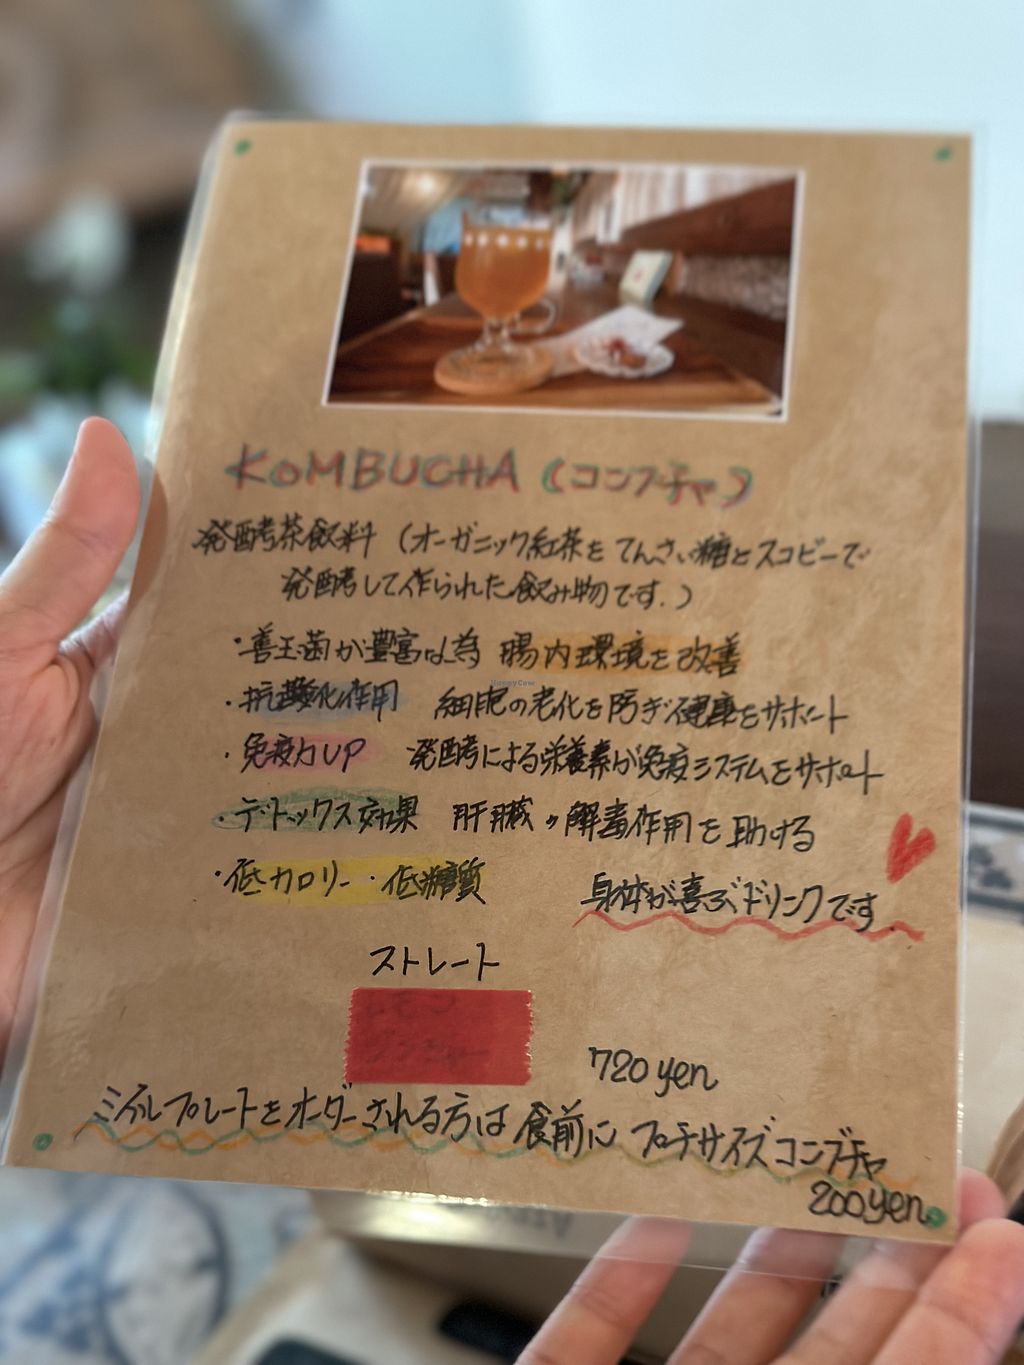 KOMBUCHA (コンブチャ)
発酵茶飲料 (オーガニック紅茶をてんさい糖とスコビーで
発酵して作られた飲み物です.)
・善玉菌が豊富な為 腸内環境を改善
・抗酸化作用 細胞の老化を防ぎ健康をサポート
・免疫力UP 発酵による栄養素が免疫システムをサポート
・デトックス効果 肝臓の解毒作用を助ける
・低カロリー・低糖質 身体が喜ぶドリンクです.
ストレート
720 yen
ミールプレートをオーダーされる方は 食前に プチサイズコンブチャ
200yen
HappyCow